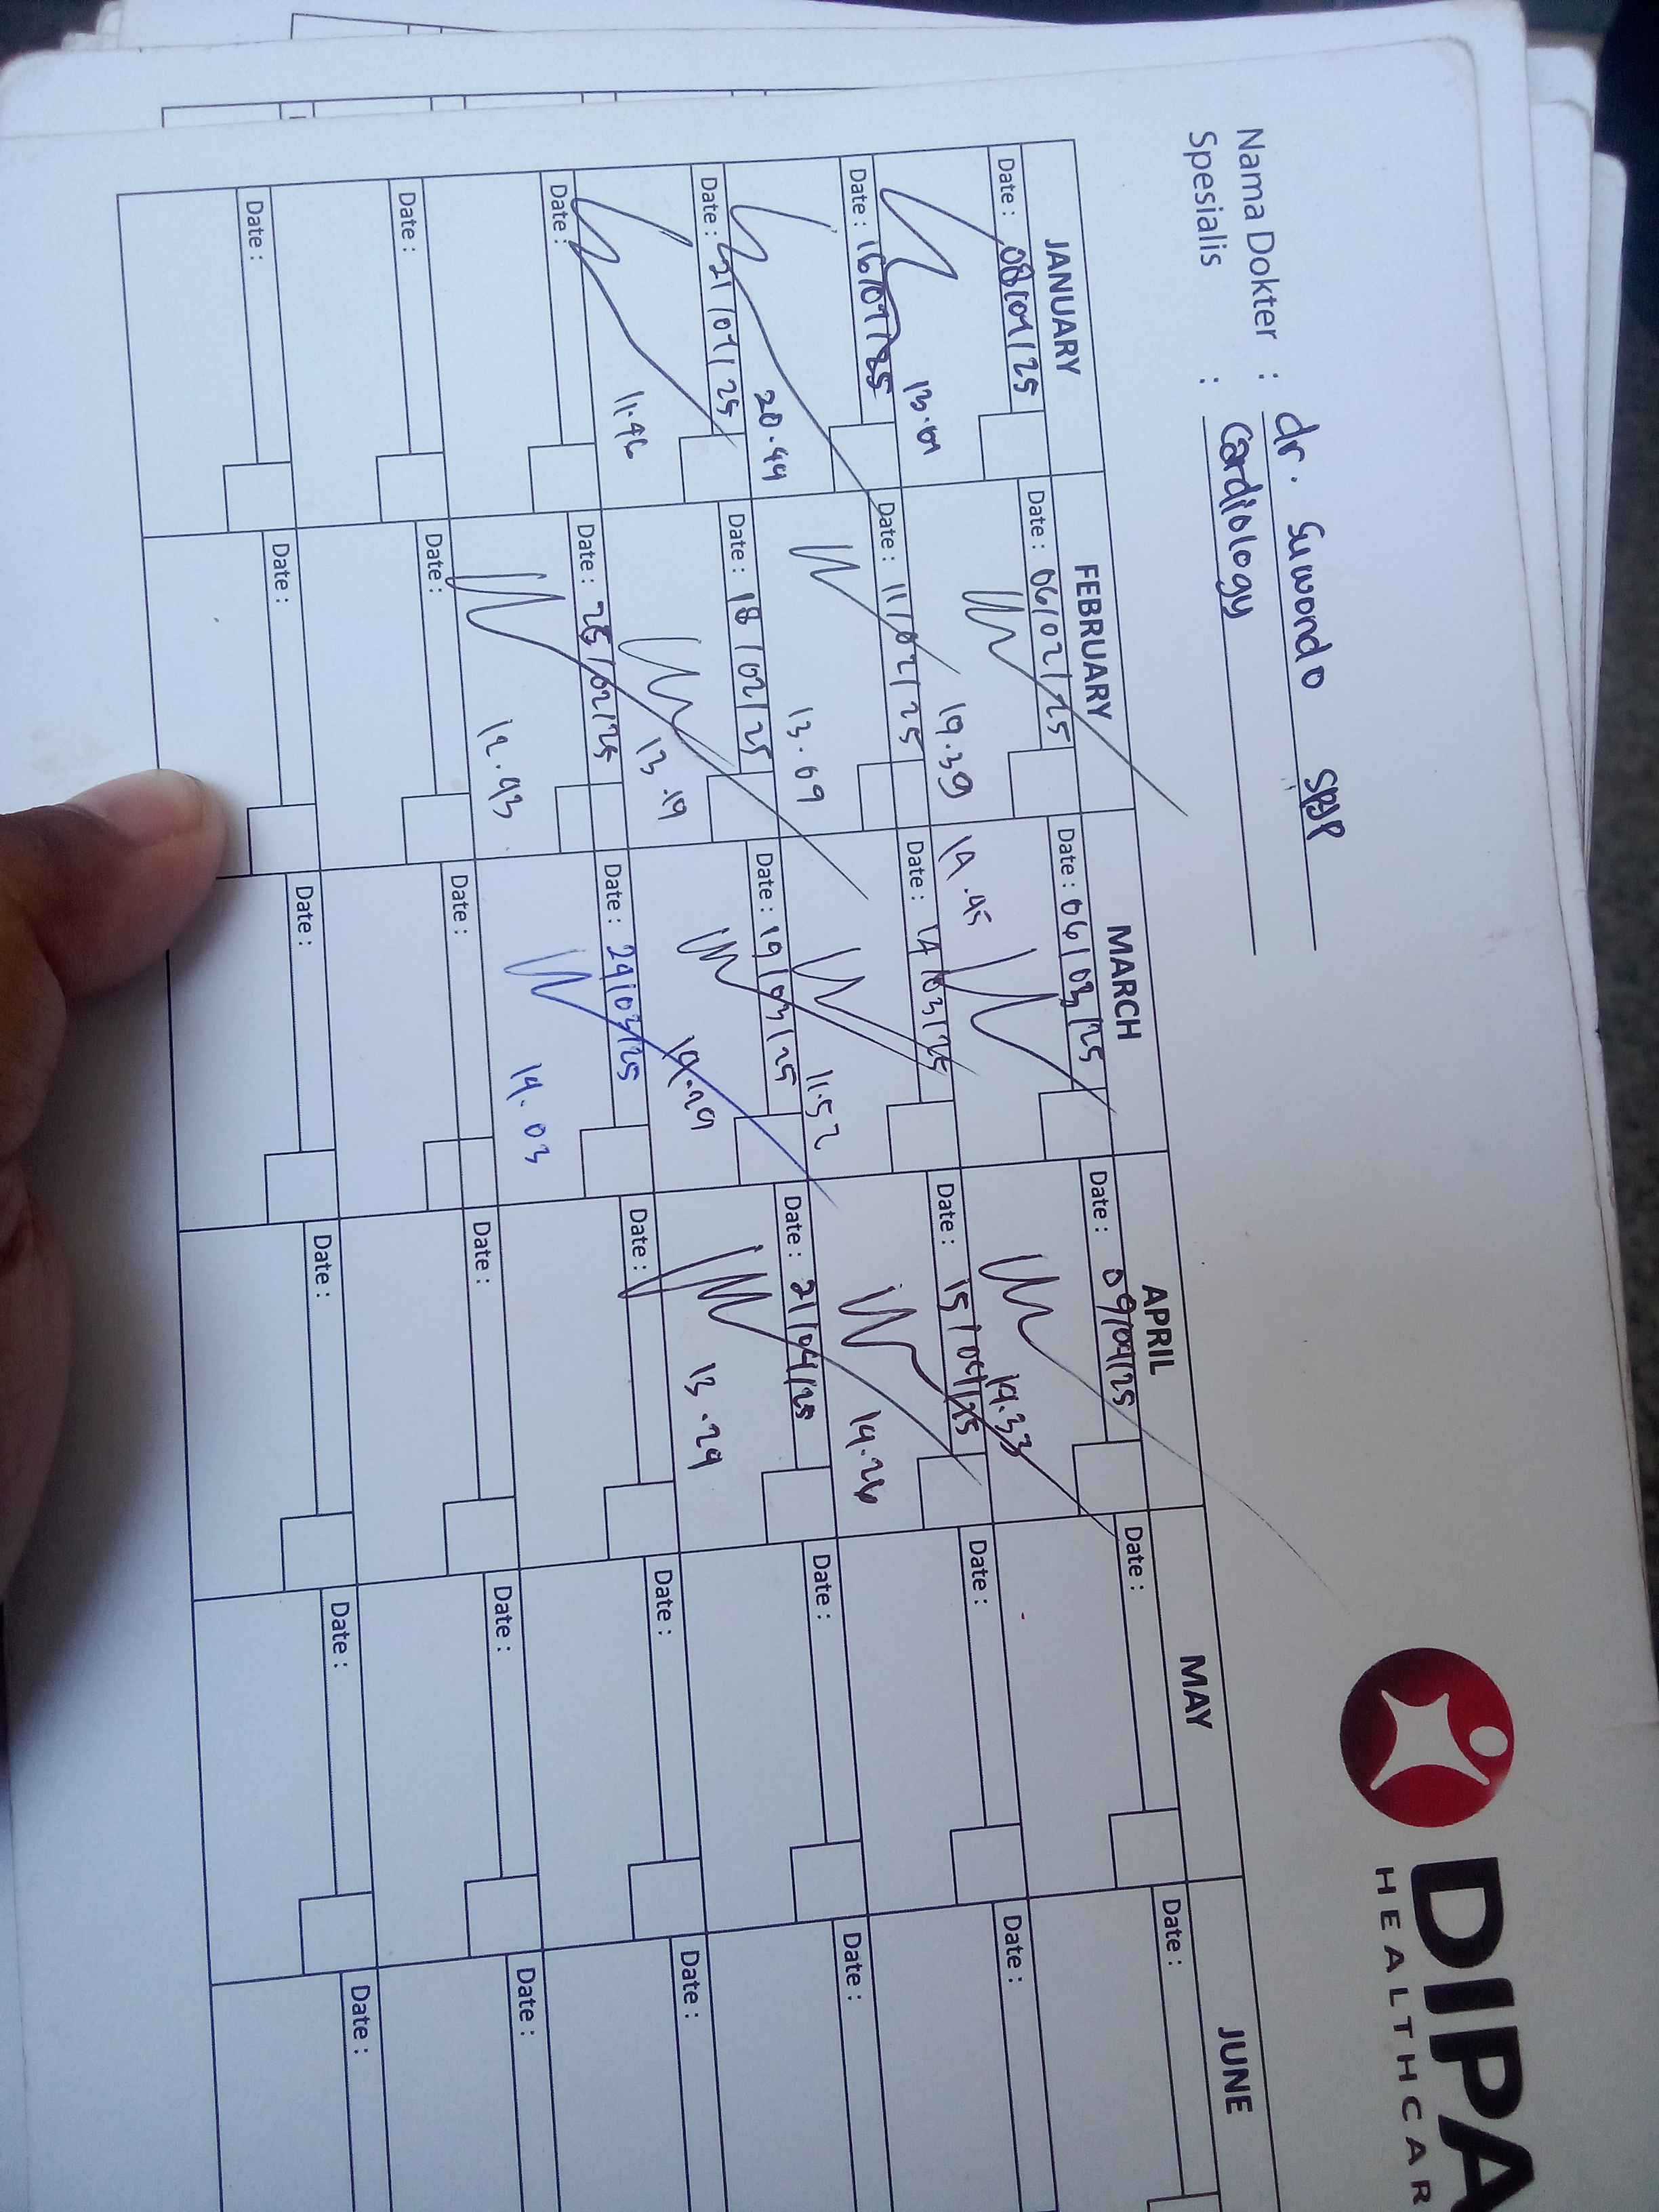 DIPA
HEALTHCAR
Nama Dokter : dr. Suwondo SpJP
Spesialis : Cardiology
JANUARY FEBRUARY MARCH APRIL MAY JUNE
Date : 08/01/25 Date : 06/02/25 Date : 06/03/25 Date : 09/04/25 Date : Date :
19.39 14.45 14.33
Date : 16/01/25 Date : 11/02/25 Date : 14/03/25 Date : 15/04/25 Date : Date :
20.44 13.09 11.52 14.26
Date : 21/01/25 Date : 18/02/25 Date : 19/03/25 Date : 21/04/25 Date : Date :
11.46 13.19 14.29 13.29
Date : Date : 25/02/25 Date : 24/03/25 Date : Date : Date :
12.43 14.03
Date : Date : Date : Date : Date : Date :
Date : Date : Date : Date : Date : Date :